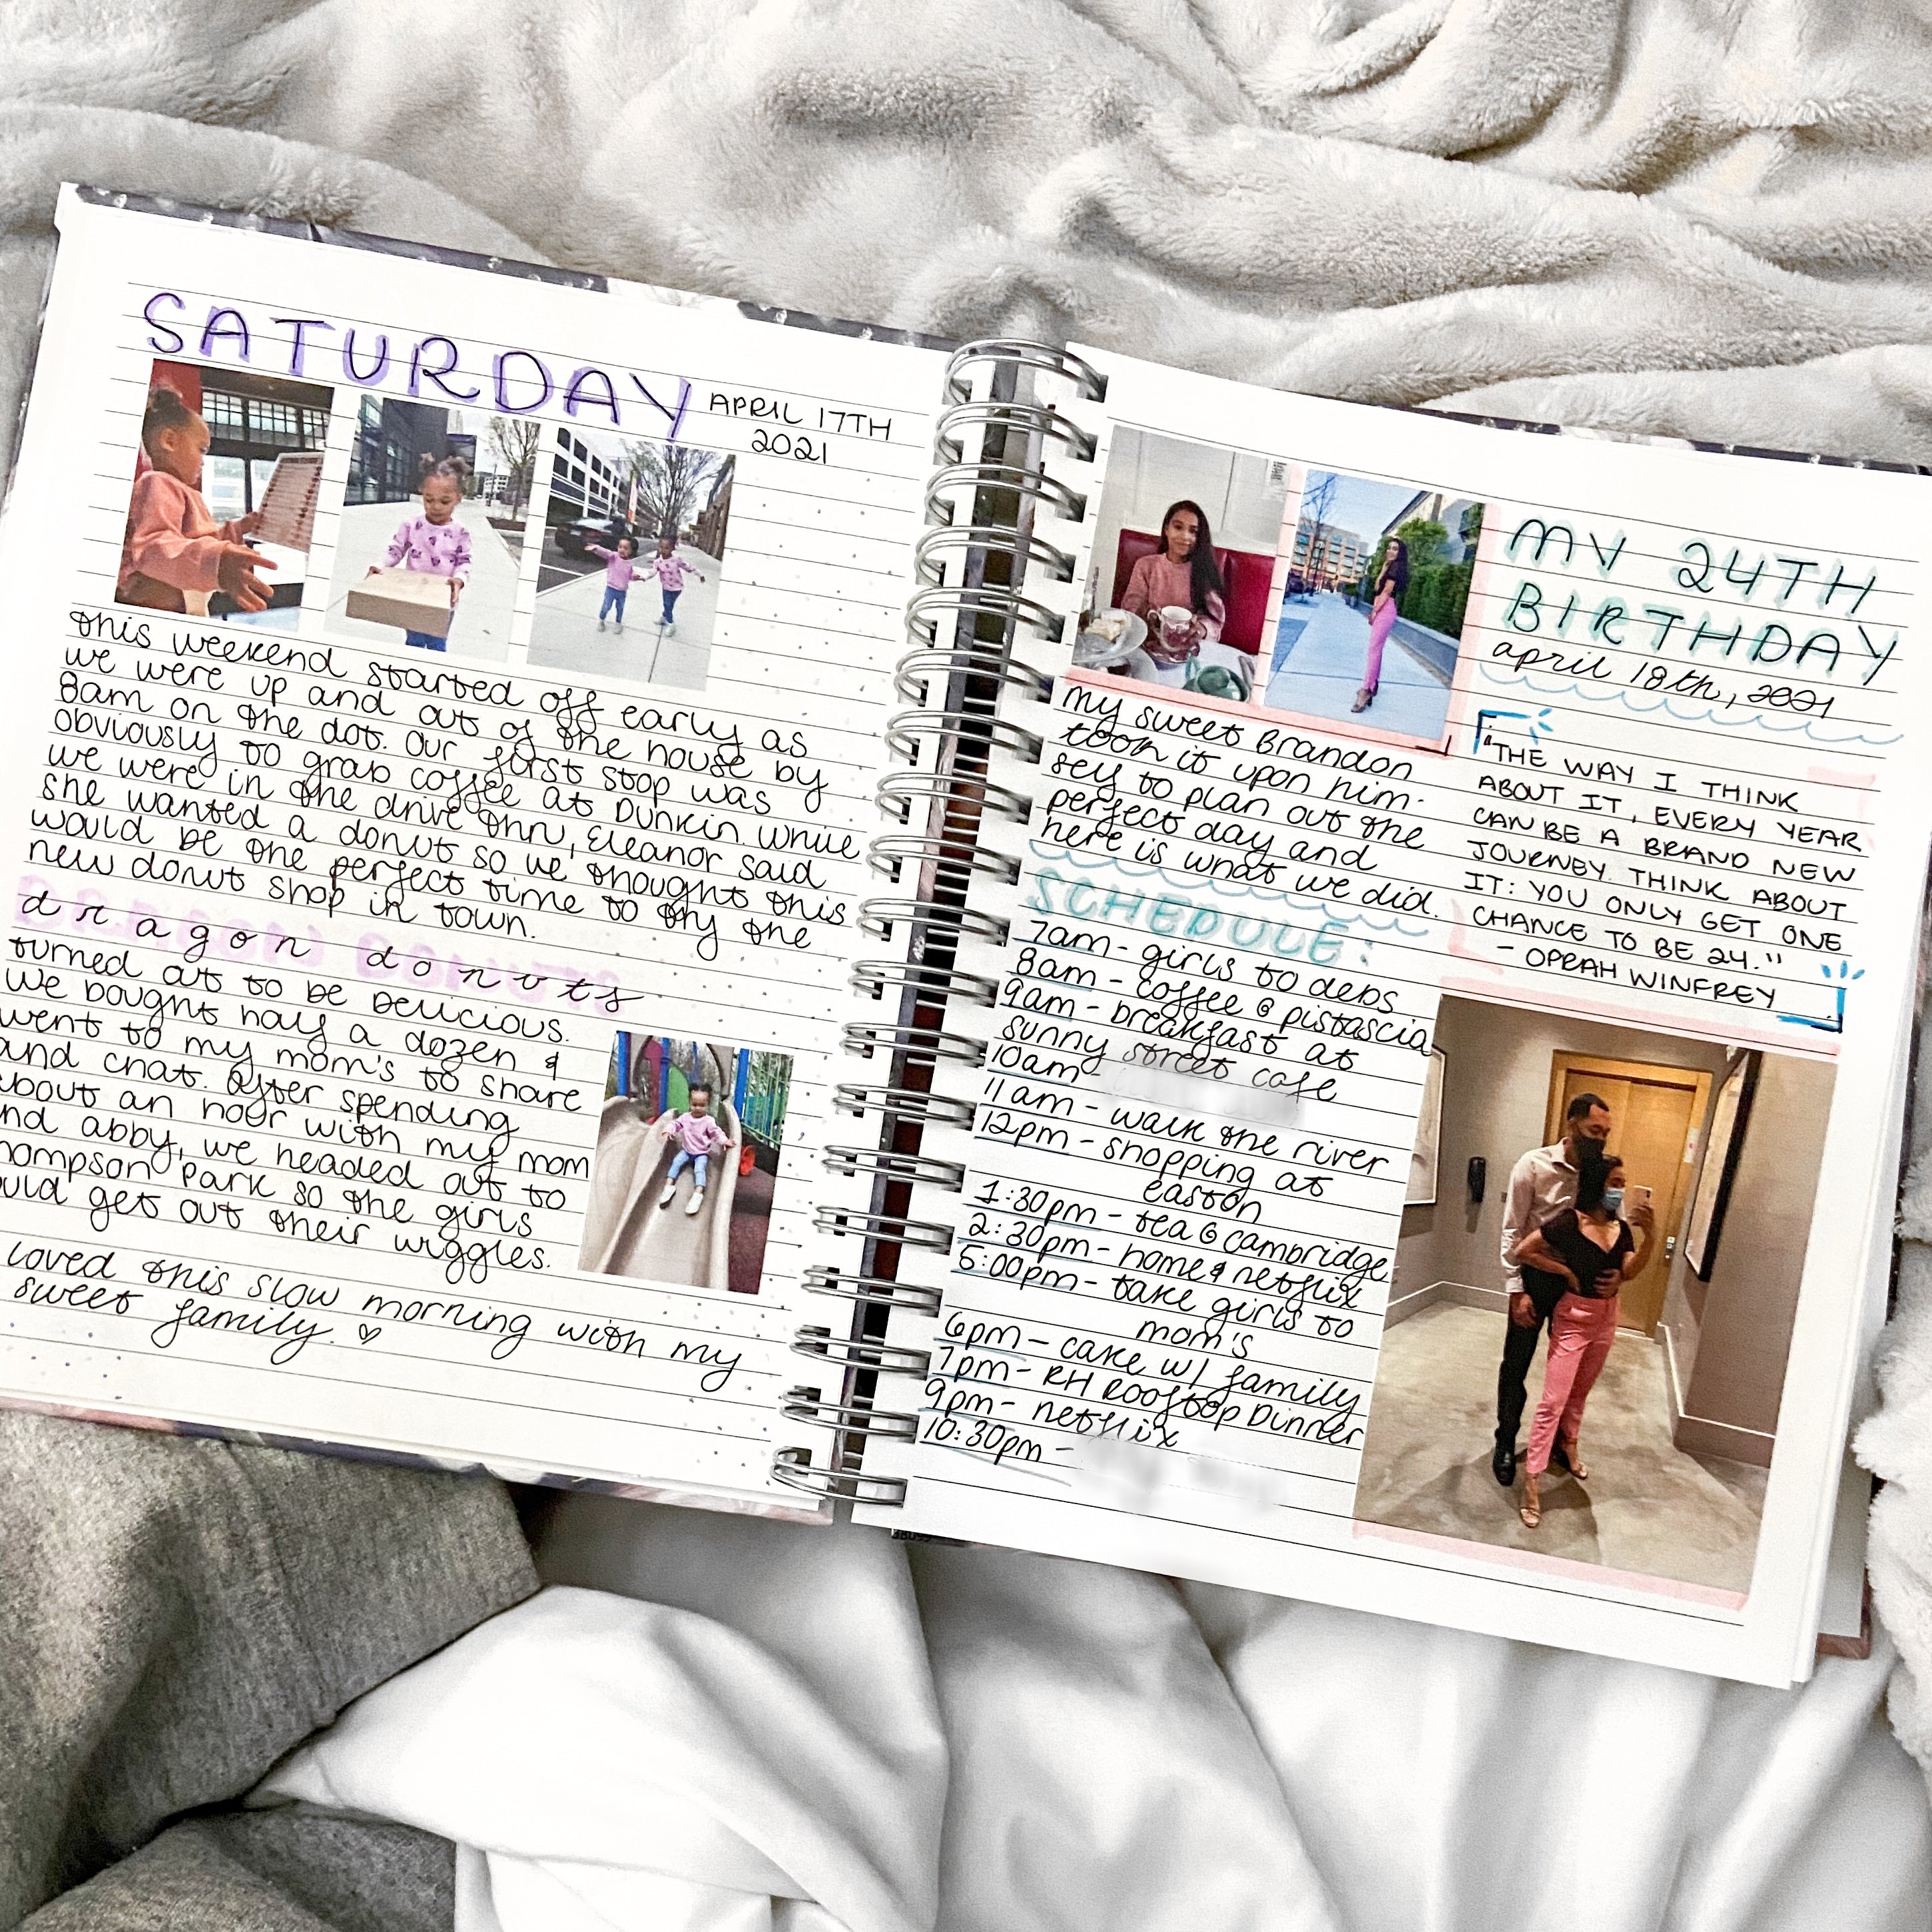 SATURDAY
APRIL 17TH
2021
this weekend started off early as
we were up and out of the house by
8am on the dot. Our first stop was
obviously to grab coffee at Dunkin. While
we were in the drive thru, Eleanor said
she wanted a donut so we thought this
would be the perfect time to try the
new donut shop in town.
dragon donuts
turned out to be delicious.
We bought half a dozen &
went to my mom's to share
and chat. After spending
about an hour with my mom
and abby, we headed out to
hompson Park so the girls
ould get out their wiggles.
loved this slow morning with my
sweet family. ♡
MY 24TH
BIRTHDAY
april 18th, 2021
my sweet Brandon
took it upon him-
self to plan out the
perfect day and
here is what we did.
"THE WAY I THINK
ABOUT IT, EVERY YEAR
CAN BE A BRAND NEW
JOURNEY. THINK ABOUT
IT: YOU ONLY GET ONE
CHANCE TO BE 24."
- OPRAH WINFREY
SCHEDULE:
7am - girls to debs
8am - coffee @ pistascia
9am - breakfast at
sunny street cafe
10am -
11am - walk the river
12pm - shopping at
easton
1:30pm - tea @ cambridge
2:30pm - home & netflix
5:00pm - take girls to
mom's
6pm - cake w/ family
7pm - RH Rooftop Dinner
9pm - netflix
10:30pm -